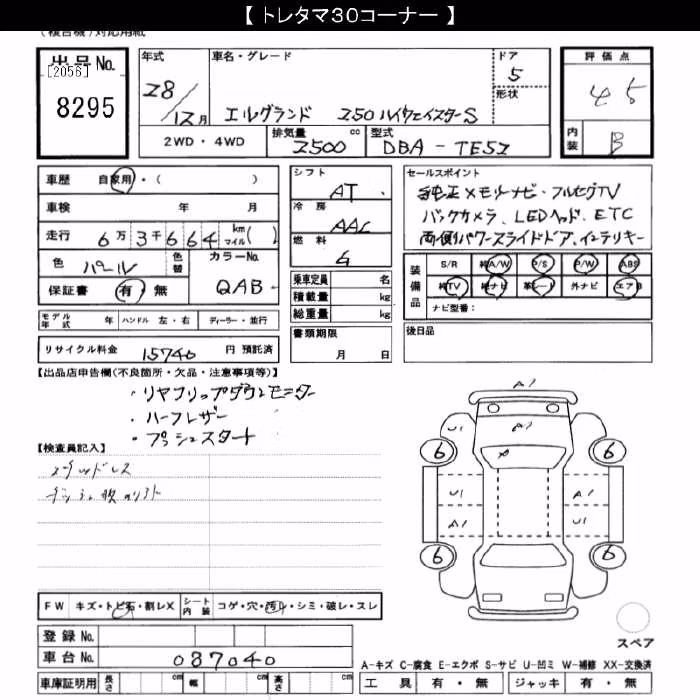 【 トレタマ30コーナー 】
(複合機)対応用紙
出品No.
[2056]
8295
年式
28/12月
車名・グレード
エルグランド 250ハイウェイスターS
ドア
5
形状
評価点
4.5
内装
B
2WD・4WD
排気量
2500
cc
型式
DBA - TE52
車歴 自家用・( )
車検 年 月
走行 6万3千664 km マイル( )
色 パール
色替
カラーNo.
QAB
保証書 有・無
シフト
AT
冷房
AAC
燃料
G
乗車定員 名
積載量 kg
総重量 kg
セールスポイント
純正メモリーナビ・フルセグTV
バックカメラ、LEDヘッド、ETC
両側パワースライドドア、インテリキー
装備品
S/R 純A/W P/S P/W ABS
純TV 純ナビ 革シート 外ナビ エアB
ナビ型番:
モデル年式 年 ハンドル 左・右 ディーラー・並行
書類期限
月 日
後日品
リサイクル料金 15740 円 預託済
【出品店申告欄(不良箇所・欠品・注意事項等)】
・リヤフリップダウンモニター
・ハーフレザー
・プッシュスタート
【検査員記入】
A1
U1
A1
6
6
U1
A1
A1
U1
6
6
スペア
FW キズ・トビ石・割レX
シート内装 コゲ・穴・汚レ・シミ・破レ・スレ
登録No.
車台No. 087040
A-キズ C-腐食 E-エクボ S-サビ U-凹ミ W-補修 XX-交換済
車庫証明用 長さ cm 幅 cm 高さ cm
工具 有・無 ジャッキ 有・無